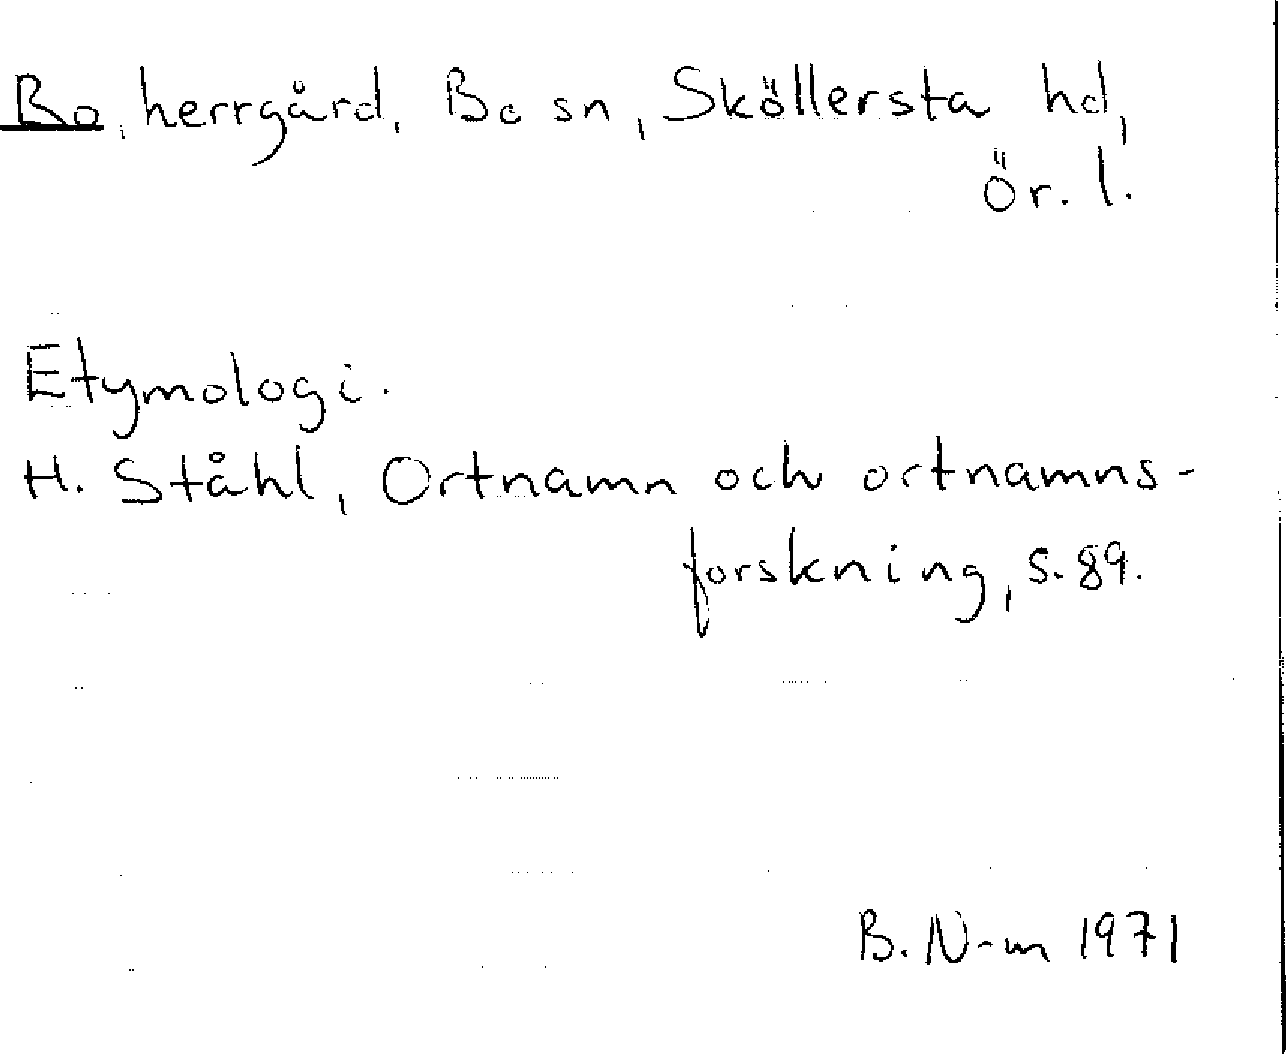 Bo, herrgård, Bo sn, Sköllersta hd,
ör. l.
Etymologi.
H. Ståhl, Ortnamn och ortnamns-
forskning, s. 89.
B. N-m 1971